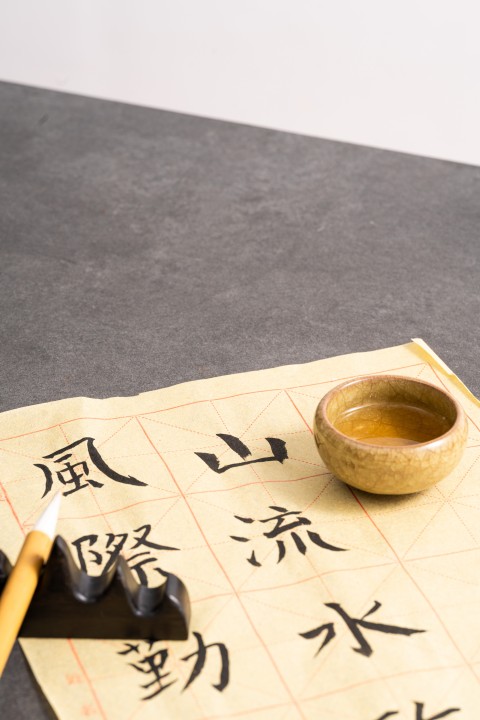 山流水
風際勤